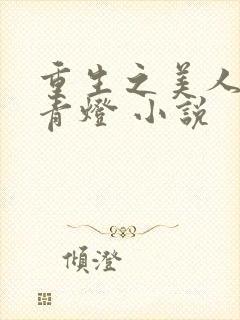 重生之美人
青燈 小説
傾澄